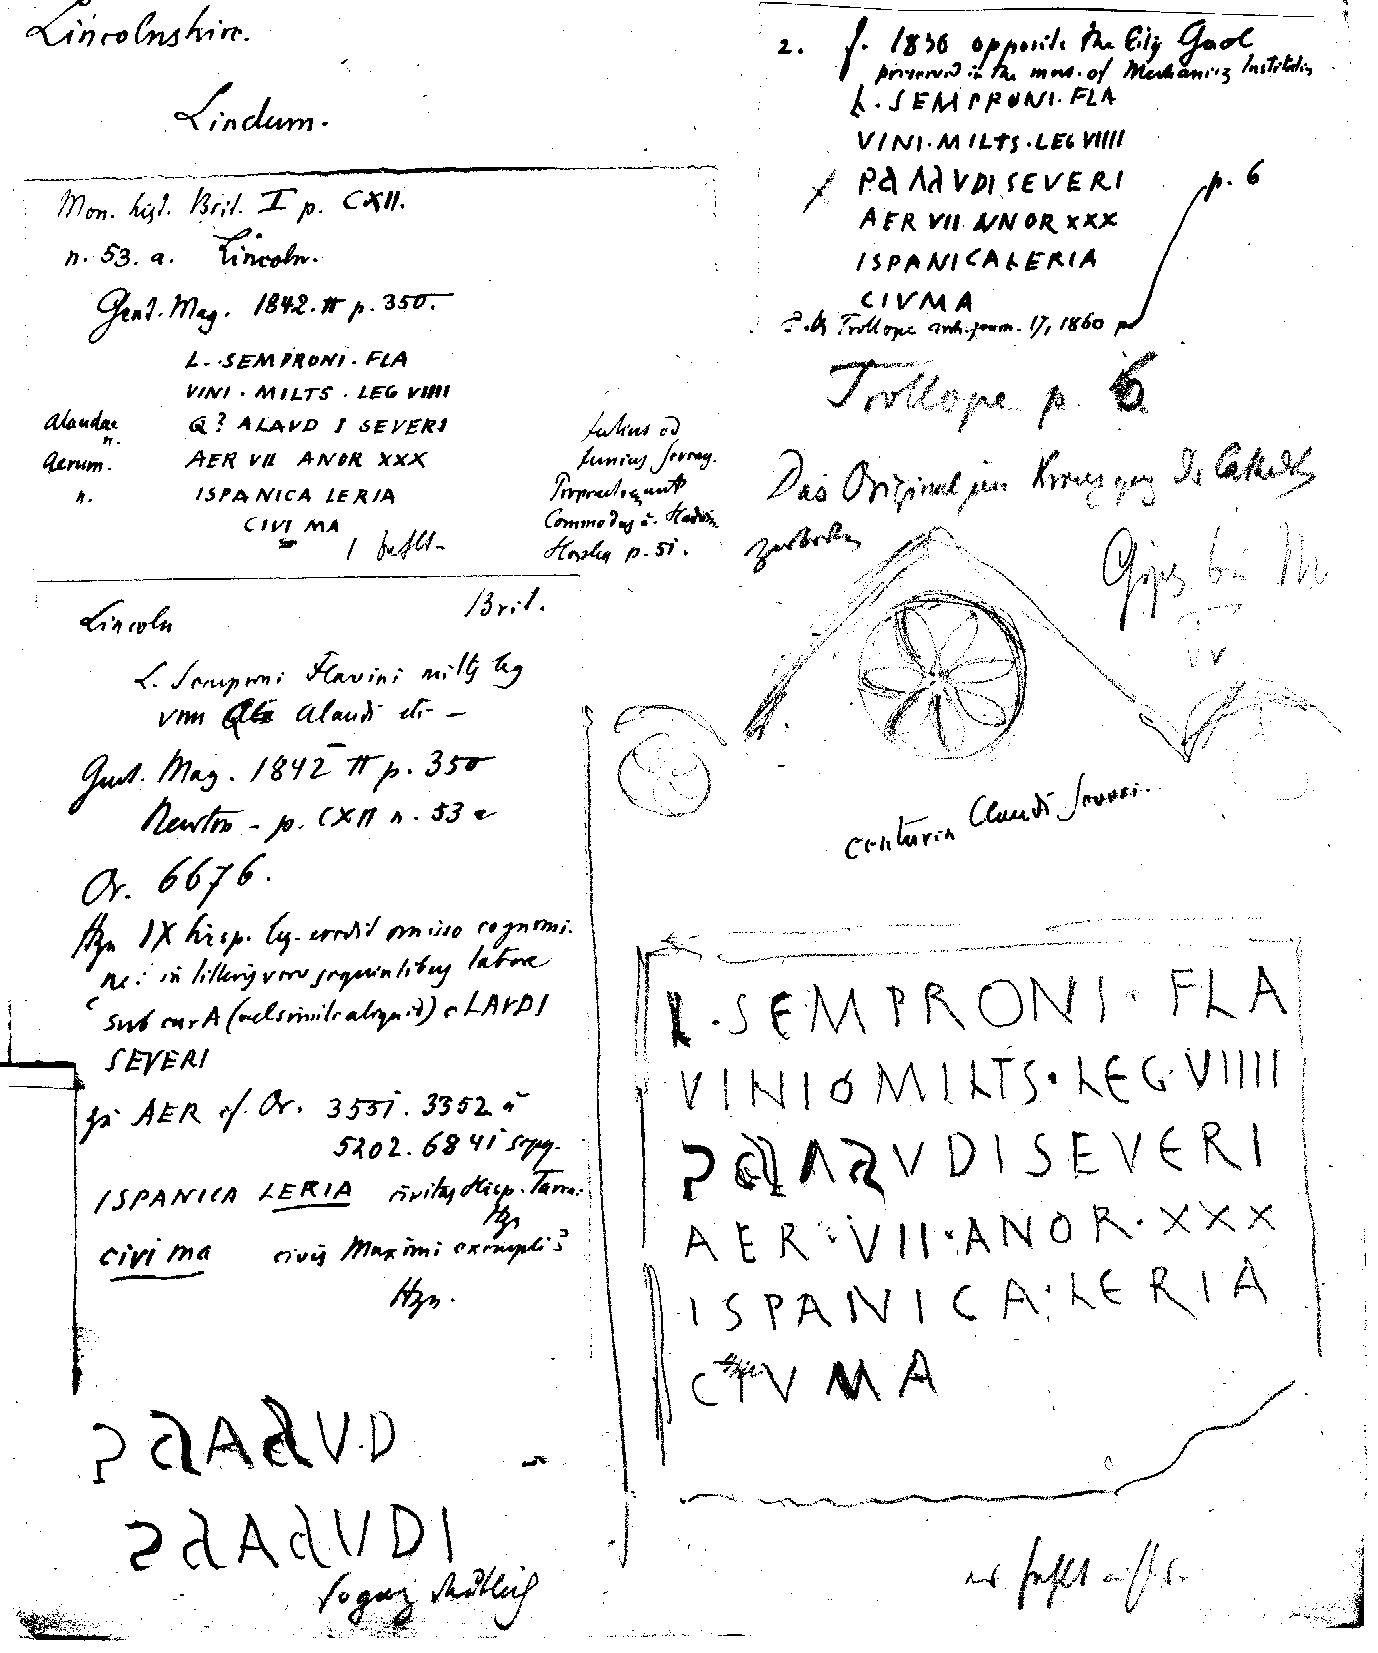 Lincolnshire.
Lindum.
Mon. hist. Brit. I p. CXII.
n. 53. a. Lincoln.
Gent. Mag. 1842. II p. 350.
L. SEMPRONI. FLA
VINI. MILTS. LEG VIIII
Alaudae n. Q? ALAVD I SEVERI
Aerum. AER VII ANOR XXX
n. ISPANICA LERIA
CIVI MA
1 fehlt
Julius od
Junius Severus
Propraetor unt
Commodus
Horsley p. 51.
Lincoln Brit.
L. Semproni Flavini milts leg
VIIII Alaudi etc -
Gent. Mag. 1842 II p. 350
Newton - p. CXII n. 53 a
Or. 6676.
Hzn IX hisp. leg. credit omisso cognomi-
ne: in litteris vero sequentibus latere
sub curA (vel simile aliquid) cLAVDI
SEVERI
zu AER cf. Or. 3551. 3352 a
5202. 6841 sqq.
ISPANICA LERIA civitas Hisp. Tarra.
Hzn
civi ma civis Maximi exempli?
Hzn.
AVD
AVDI
2. f. 1836 opposite the City Gaol
preserved in the mus. of Mechanics Institution
L. SEMPRONI. FLA
VINI. MILTS. LEG VIIII
VDI SEVERI
AER VII ANNOR XXX
ISPANICALERIA
CIVMA
p. 6
Trollope arch. journ. 17, 1860 p
Trollope p. 6
Das Original im Kreuzgang der Cathedr
zerbrochen
Gips bei
centuria Claudi Severi.
L. SEMPRONI. FLA
VINI MILTS. LEG. VIIII
VDISEVERI
AER. VII. ANOR. XXX
ISPANICA. LERIA
CIVMA
es fehlt nichts.